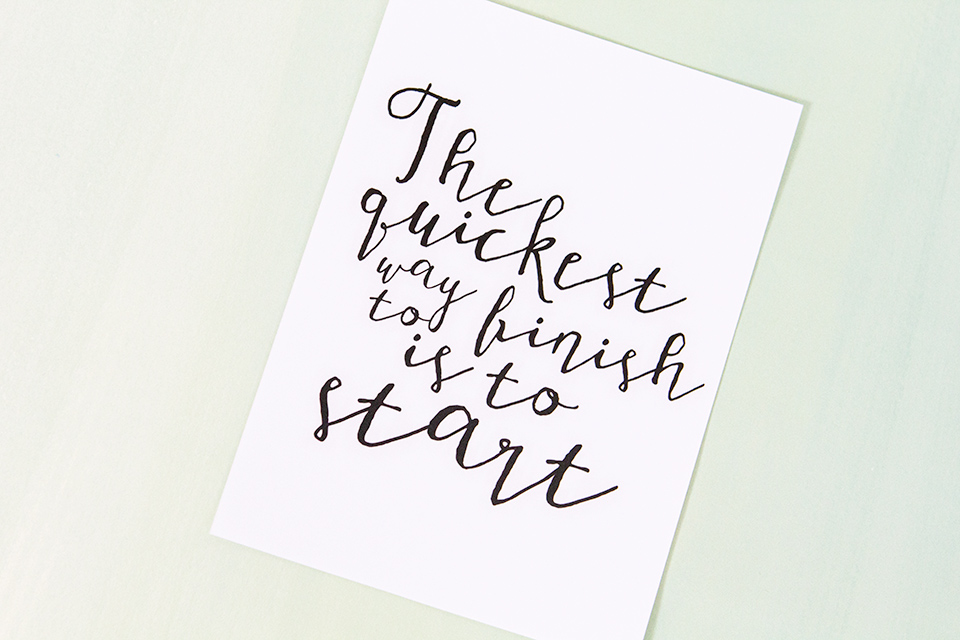 The
quickest
way
to finish
is to
start